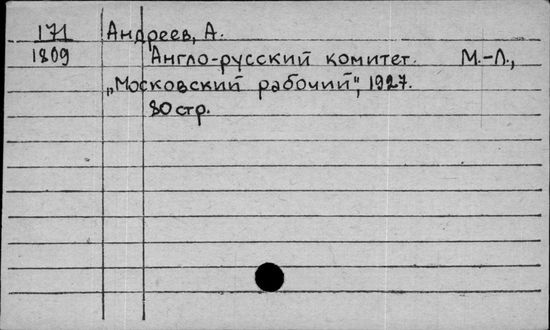 171 Андреев, А.
1809 Англо-русский комитет. М.-Л.,
„Московский рабочий", 1927.
80 стр.